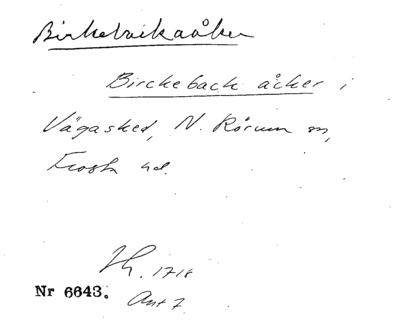 Birkebacksåker
Birckeback åcker i
Vägasked, N. Rörum sn,
Frosta hd.
Lh. 1718
Nr 6643. Ant 7